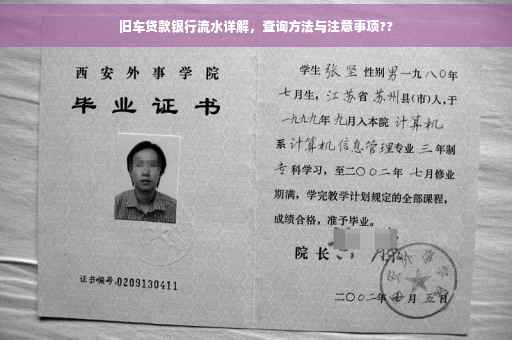 旧车贷款银行流水详解，查询方法与注意事项??
西安外事学院
毕业证书
证书编号:0209130411
学生 张坚 性别男一九八〇年
七月生，江苏省 苏州县(市)人，于
一九九九年 九月入本院 计算机
系 计算机信息管理专业 三 年制
专 科学习，至二〇〇二年 七月修业
期满，学完教学计划规定的全部课程，
成绩合格，准予毕业。
院 长
二〇〇二年 月 五日